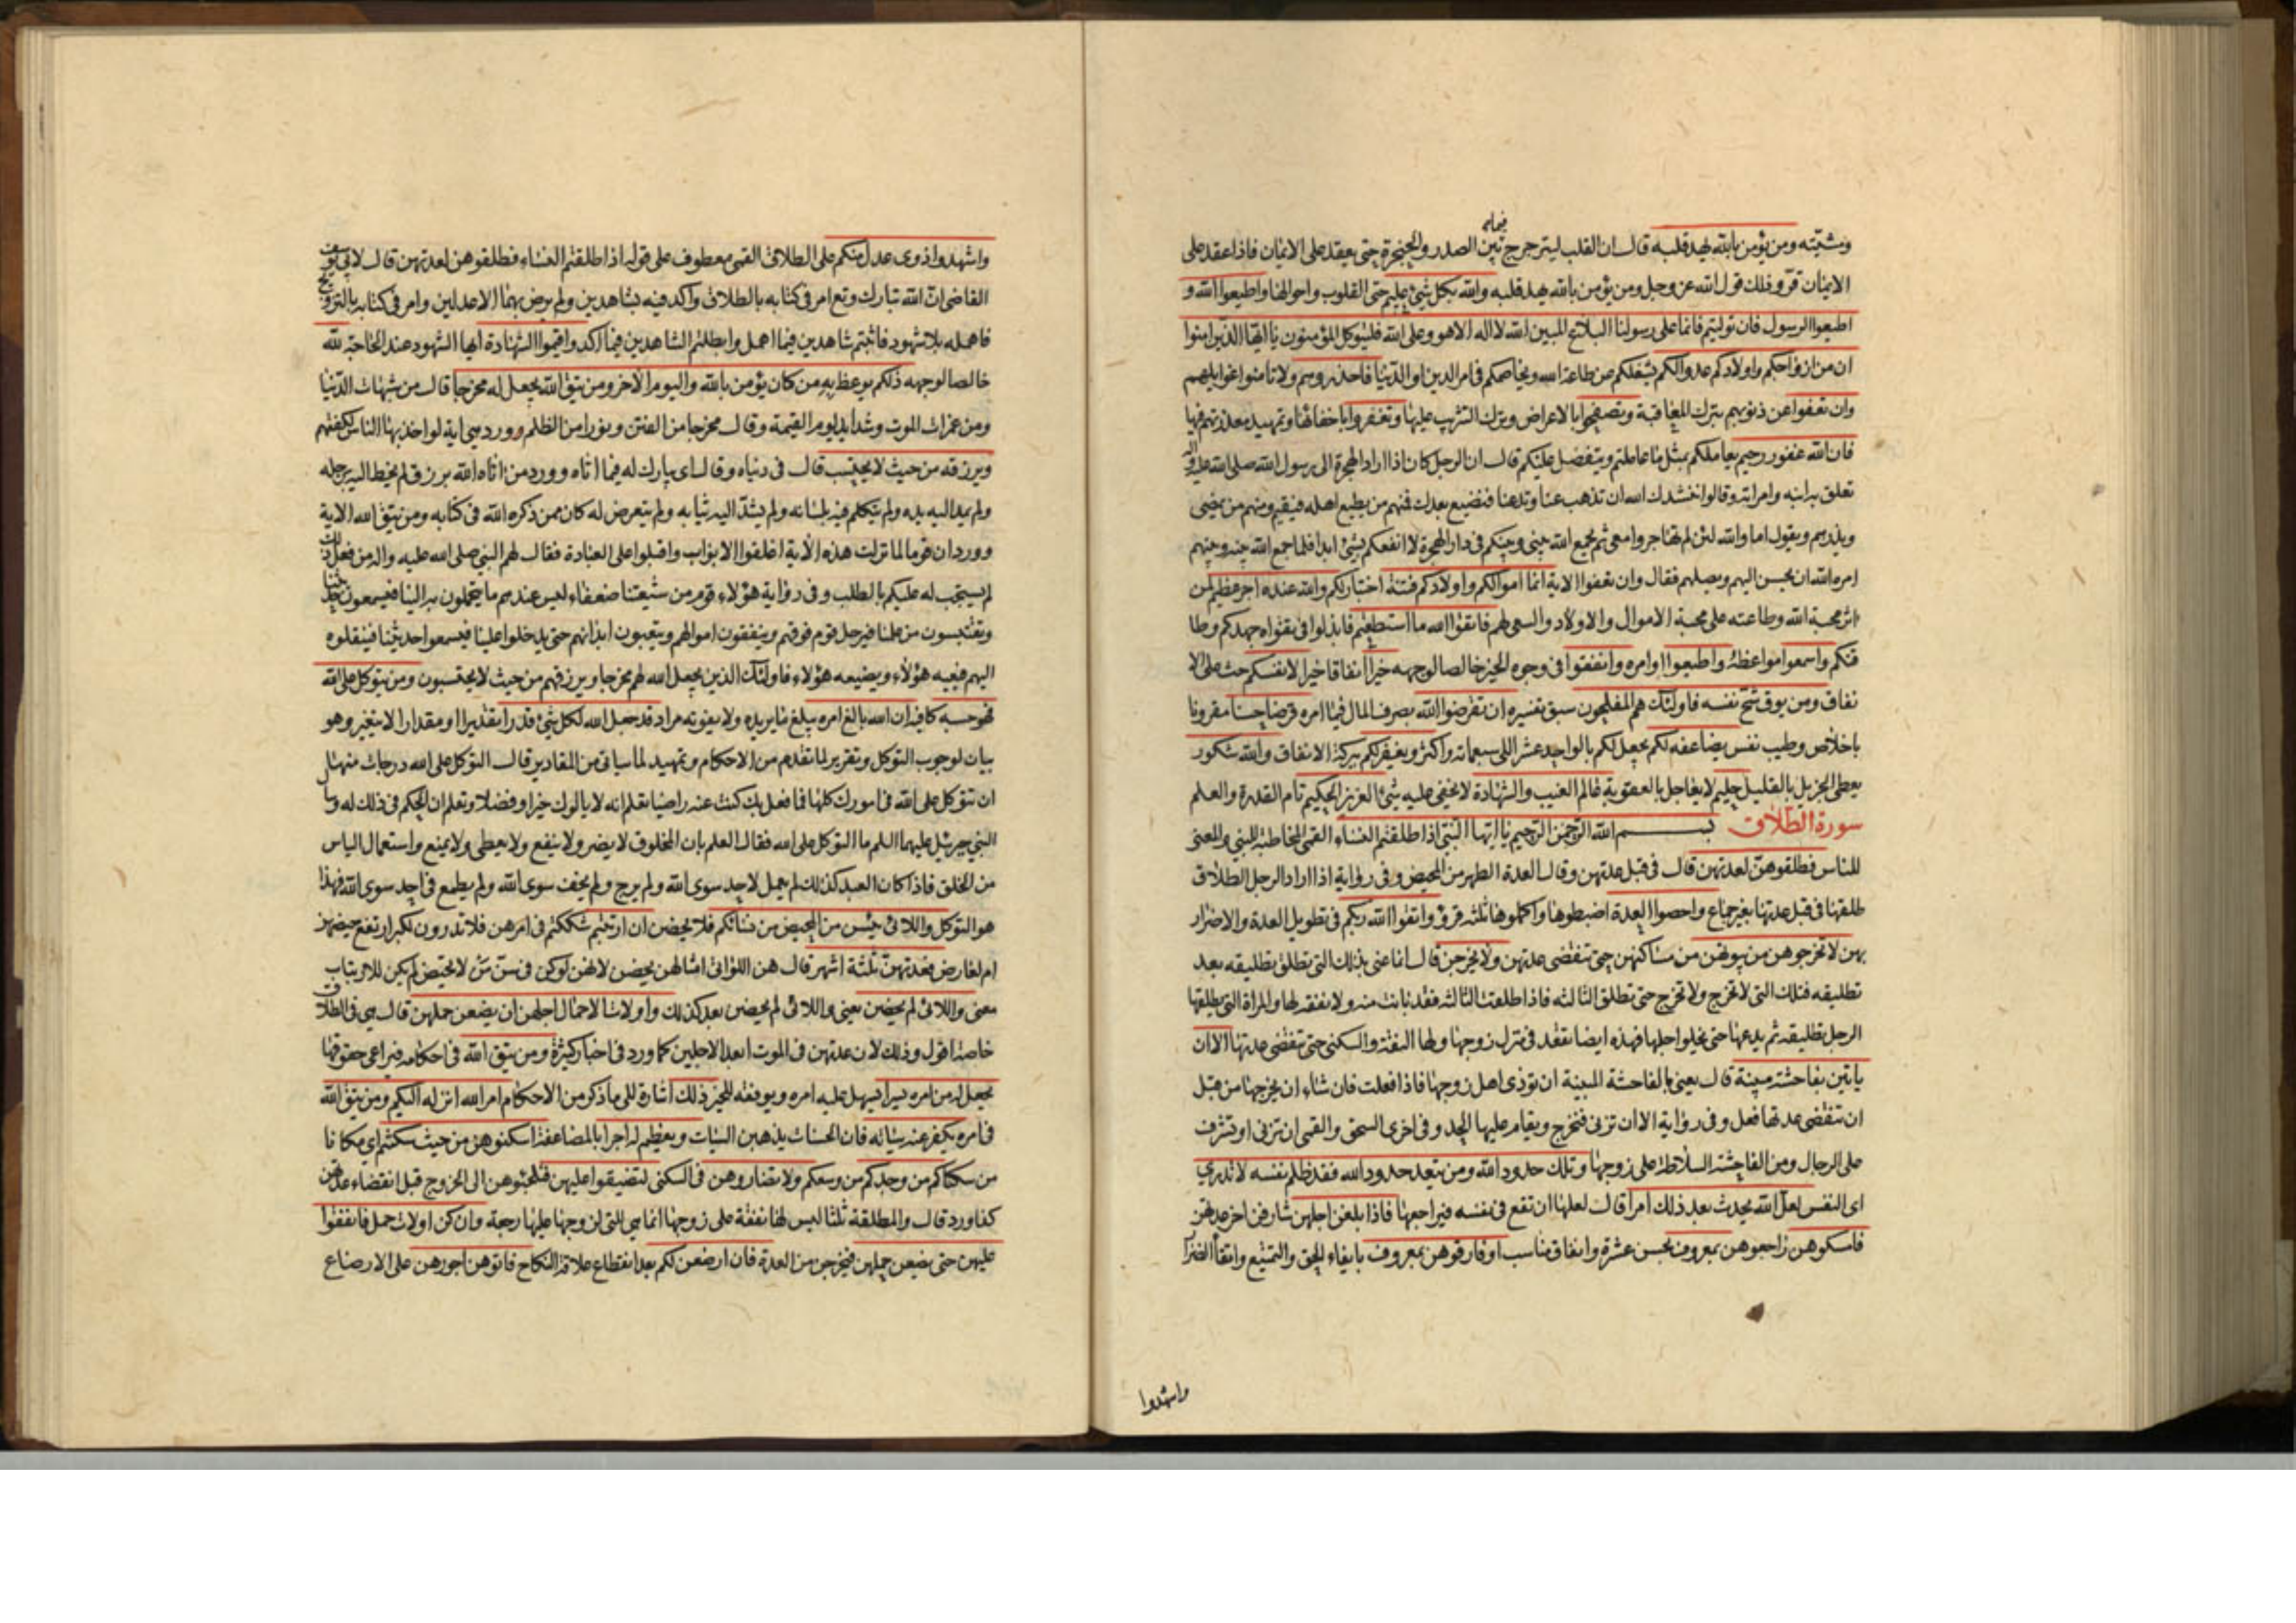 فيما
ومشيّته ومن يؤمن بالله يهد قلبه قال ان القلب ليترجرج بين الصدر والحنجرة حتى يعقد على الايمان فاذا عقد على
الايمان قرّ وذلك قول الله عز وجل ومن يؤمن بالله يهد قلبه والله بكل شئ عليم حتى القلوب واحوالها واطيعوا الله و
اطيعوا الرسول فان توليتم فانما على رسولنا البلاغ المبين الله لا اله الا هو وعلى الله فليتوكل المؤمنون يا ايها الذين امنوا
ان من ازواجكم واولادكم عدوا لكم يشغلكم عن طاعة الله ويخاصمكم في امر الدين او الدنيا فاحذروهم ولا تأمنوا غوايلهم
وان تعفوا عن ذنوبهم بترك المعاقبة وتصفحوا بالاعراض وترك التثريب عليها وتغفروا باخفائها وتمهيد معذرتهم فيها
فان الله غفور رحيم يعاملكم بمثل ما عاملتم ويتفضل عليكم قال ان الرجل كان اذا اراد الهجرة الى رسول الله صلى الله عليه واله
تعلق به ابنه وامراته وقالوا ننشدك الله ان تذهب عنا وتدعنا فنضيع بعدك فمنهم من يطيع اهله فيقيم ومنهم من يمضى
ويذرهم ويقول اما والله لئن لم تهاجروا معى ثم يجمع الله بينى وبينكم في دار الهجرة لا انفعكم بشئ ابدا فلما جمع الله بينه وبينهم
امره الله ان يحسن اليهم ويصلهم فقال وان تعفوا الاية انما اموالكم واولادكم فتنة اختبار لكم والله عنده اجر عظيم لمن
اثر محبة الله وطاعته على محبة الاموال والاولاد والسعى لهم فاتقوا الله ما استطعتم فابذلوا في تقواه جهدكم وطا
قتكم واسمعوا مواعظه واطيعوا اوامره وانفقوا في وجوه الخير خالصا لوجهه خيرا لانفسكم انفاقا خيرا لانفسكم حث على الا
نفاق ومن يوق شح نفسه فاولئك هم المفلحون سبق تفسيره ان تقرضوا الله بصرف المال فيما امره قرضا حسنا مقرونا
باخلاص وطيب نفس يضاعفه لكم يجعل لكم بالواحد عشرا الى سبعمائة واكثر ويغفر لكم ببركة الانفاق والله شكور
يعطى الجزيل بالقليل حليم لا يعاجل بالعقوبة عالم الغيب والشهادة لا يخفى عليه شئ العزيز الحكيم تام القدرة والعلم
سورة الطلاق بسم الله الرحمن الرحيم يا ايها النبى اذا طلقتم النساء القمى المخاطبة للنبى والمعنى
للناس فطلقوهن لعدتهن قال في قبل عدتهن وقال العدة الطهر من المحيض وفي رواية اذا اراد الرجل الطلاق
طلقها في قبل عدتها بغير جماع واحصوا العدة اضبطوها واكملوها ثلثة قروء واتقوا الله ربكم في تطويل العدة والاضرار
بهن لا تخرجوهن من بيوتهن من مساكنهن حتى تنقضى عدتهن ولا يخرجن قال انما عنى بذلك التى تطلق تطليقه بعد
تطليقه فتلك التى لا تخرج ولا تخرج حتى تطلق الثالثه فاذا طلقت الثالثه فقد بانت منه ولا نفقة لها والمراة التى يطلقها
الرجل تطليقه ثم يدعها حتى يخلوا اجلها فهذه ايضا تقعد في منزل زوجها ولها النفقة والسكنى حتى تنقضى عدتها الا ان
ياتين بفاحشة مبينة قال يعنى بالفاحشة المبينة ان تؤذى اهل زوجها فاذا فعلت فان شاء ان يخرجها من قبل
ان تنقضى عدتها فعل وفي رواية الا ان تزنى فتخرج ويقام عليها الحد وفي اخرى السحق والقمى ان تزنى او تشرف
على الرجال ومن الفاحشة السلاطة على زوجها وتلك حدود الله ومن يتعد حدود الله فقد ظلم نفسه لا تدرى
اى النفس لعل الله يحدث بعد ذلك امرا قال لعلها ان تقع في نفسه فيراجعها فاذا بلغن اجلهن شارفن اخر عدتهن
فامسكوهن راجعوهن بمعروف بحسن عشرة وانفاق مناسب او فارقوهن بمعروف بايفاء الحق والتمتيع واتقاء الضرار
واشهدوا
واشهدوا ذوى عدل منكم على الطلاق القمى معطوف على قوله اذا طلقتم النساء فطلقوهن لعدتهن قال لابى يوسف
القاضى ان الله تبارك وتع امر في كتابه بالطلاق واكد فيه بشاهدين ولم يرض بهما الا عدلين وامر في كتابه بالتزويج
فاهمله بلا شهود فاثبتم شاهدين فيما اهمل وابطلتم الشاهدين فيما اكد واقيموا الشهادة ايها الشهود عند الحاجة لله
خالصا لوجهه ذلكم يوعظ به من كان يؤمن بالله واليوم الاخر ومن يتق الله يجعل له مخرجا قال من شبهات الدنيا
ومن غمرات الموت وشدايد يوم القيمة وقال مخرجا من الفتن ونورا من الظلم وورد هي اية لو اخذ بها الناس لكفتهم
ويرزقه من حيث لا يحتسب قال في دنياه وقال اى يبارك له فيما اتاه وورد من اتاه الله برزق لم يخط اليه برجله
ولم يمد اليه يده ولم يتكلم فيه بلسانه ولم يشد اليه ثيابه ولم يتعرض له كان ممن ذكره الله في كتابه ومن يتق الله الاية
وورد ان قوما لما نزلت هذه الاية اغلقوا الابواب واقبلوا على العبادة فقال لهم النبى صلى الله عليه واله من فعل ذلك
لم يستجب له عليكم بالطلب وفي رواية هؤلاء قوم من شيعتنا ضعفاء ليس عندهم ما يتحملون به الينا فيسمعون حديثنا
ويقتبسون من علمنا فيرحل قوم فوقهم وينفقون اموالهم ويتعبون ابدانهم حتى يدخلوا علينا فيسمعوا حديثنا فينقلوه
اليهم فيعيه هؤلاء ويضيعه هؤلاء فاولئك الذين يجعل الله لهم مخرجا ويرزقهم من حيث لا يحتسبون ومن يتوكل على الله
فهو حسبه كافيه ان الله بالغ امره يبلغ ما يريده ولا يفوته مراد قد جعل الله لكل شئ قدرا تقديرا او مقدارا لا يتغير وهو
بيان لوجوب التوكل وتقرير لما تقدم من الاحكام وتمهيد لما سياتى من المقادير قال التوكل على الله درجات منها
ان تتوكل على الله في امورك كلها فما فعل بك كنت عنه راضيا تعلم انه لا يالوك خيرا وفضلا وتعلم ان الحكم في ذلك له وسال
النبى جبرئيل عليهما السلم ما التوكل على الله فقال العلم بان المخلوق لا يضر ولا ينفع ولا يعطى ولا يمنع واستعمال الياس
من الخلق فاذا كان العبد كذلك لم يعمل لاحد سوى الله ولم يرج ولم يخف سوى الله ولم يطمع في احد سوى الله فهذا
هو التوكل واللائى يئسن من المحيض من نسائكم فلا يحضن ان ارتبتم شككتم في امرهن فلا تدرون لكبر ارتفع حيضهن
ام لعارض فعدتهن ثلثة اشهر قال هن اللواتى امثالهن يحضن لانهن لو كن في سن من لا تحيض لم يكن للارتياب
معنى واللائى لم يحضن يعنى واللائى لم يحضن بعد كذلك واولات الاحمال اجلهن ان يضعن حملهن قال هي في الطلاق
خاصة اقول وذلك لان عدتهن في الموت ابعد الاجلين كما ورد في اخبار كثيرة ومن يتق الله في احكامه فيراعى حقوقها
يجعل له من امره يسرا يسهل عليه امره ويوفقه للخير ذلك اشارة الى ما ذكر من الاحكام امر الله انزله اليكم ومن يتق الله
في امره يكفر عنه سيئاته فان الحسنات يذهبن السيئات ويعظم له اجرا بالمضاعفة اسكنوهن من حيث سكنتم اى مكانا
من سكناكم من وجدكم من وسعكم ولا تضاروهن في السكنى لتضيقوا عليهن فتلجئوهن الى الخروج قبل انقضاء عدتهن
كذا ورد قال والمطلقة ثلثا ليس لها نفقة على زوجها انما هي للتى لزوجها عليها رجعة وان كن اولات حمل فانفقوا
عليهن حتى يضعن حملهن فيخرجن من العدة فان ارضعن لكم بعد انقطاع علاقة النكاح فاتوهن اجورهن على الارضاع